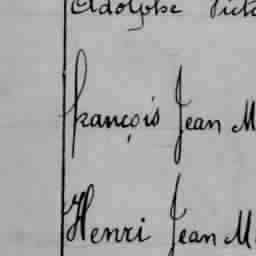 Adolphe Vict
françois Jean M
Henri Jean M